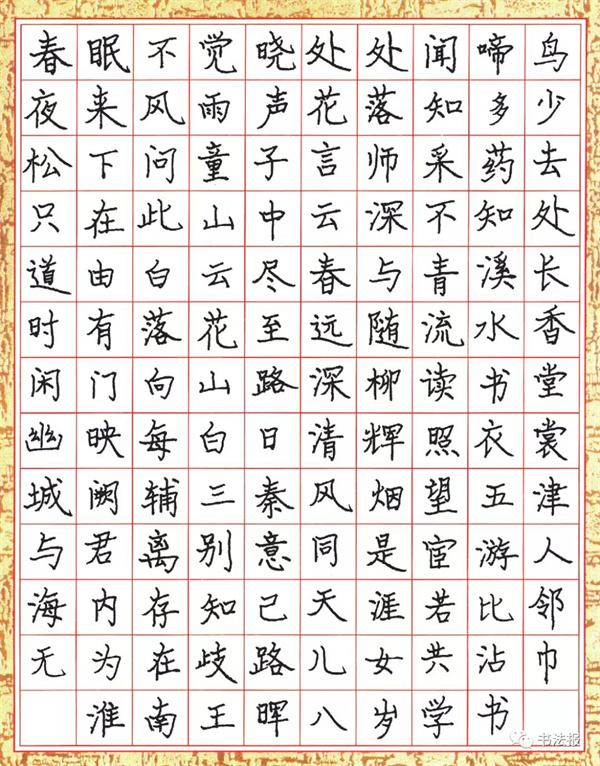 春眠不觉晓处处闻啼鸟
夜来风雨声花落知多少
松下问童子言师采药去
只在此山中云深不知处
道由白云尽春与青溪长
时有落花至远随流水香
闲门向山路深柳读书堂
幽映每白日清辉照衣裳
城阙辅三秦风烟望五津
与君离别意同是宦游人
海内存知己天涯若比邻
无为在歧路儿女共沾巾
淮南王晖八岁学书
书法报